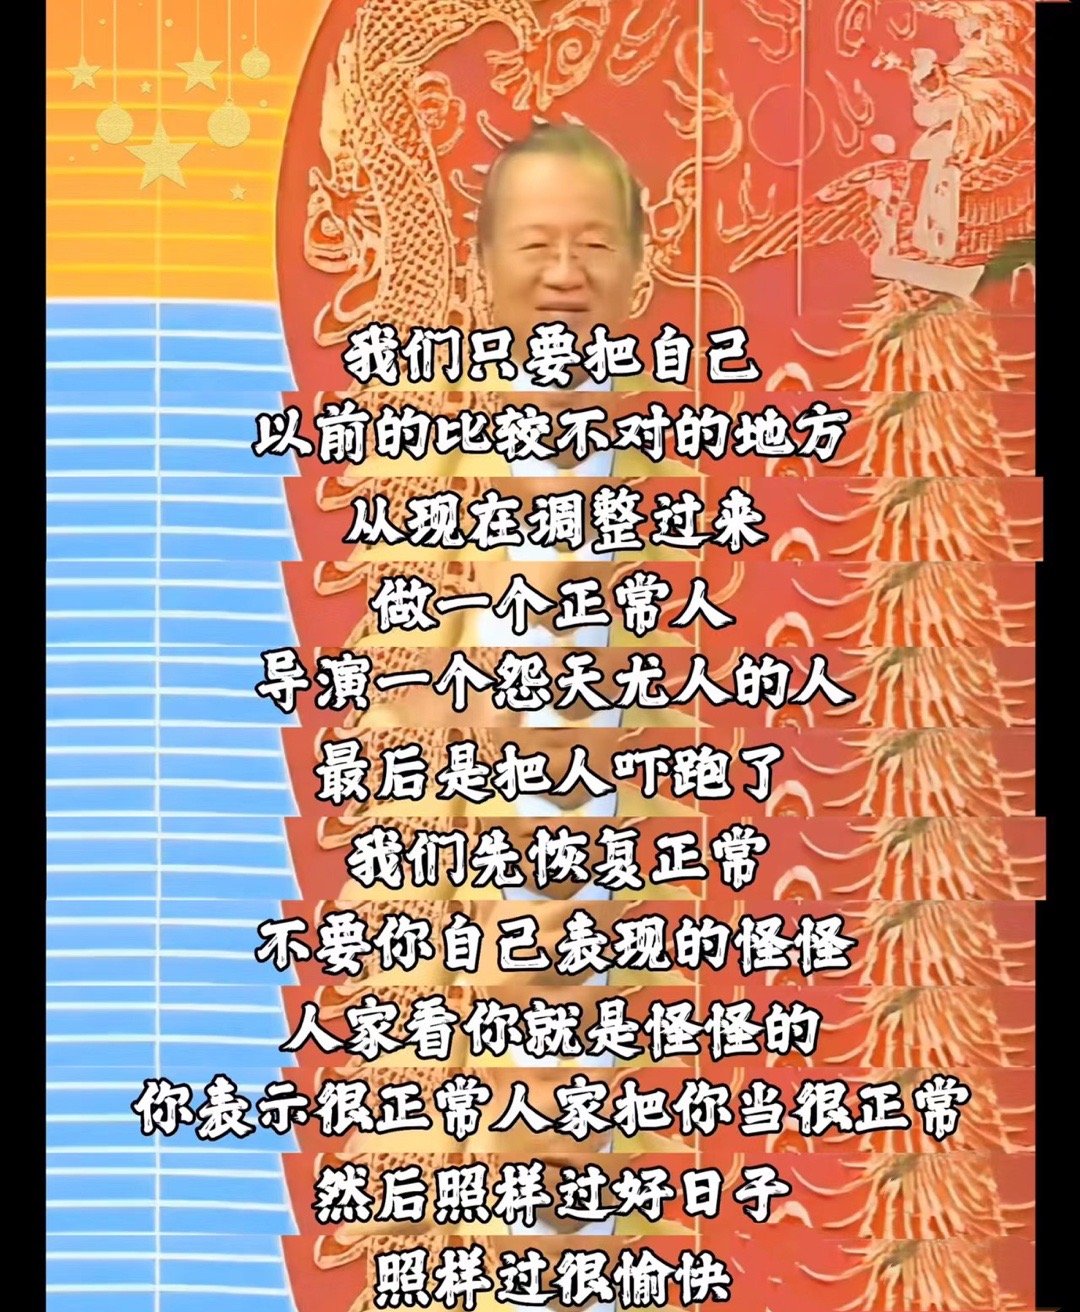 我们只要把自己
以前的比较不对的地方
从现在调整过来
做一个正常人
导演一个怨天尤人的人
最后是把人吓跑了
我们先恢复正常
不要你自己表现的怪怪
人家看你就是怪怪的
你表示很正常人家把你当很正常
然后照样过好日子
照样过很愉快